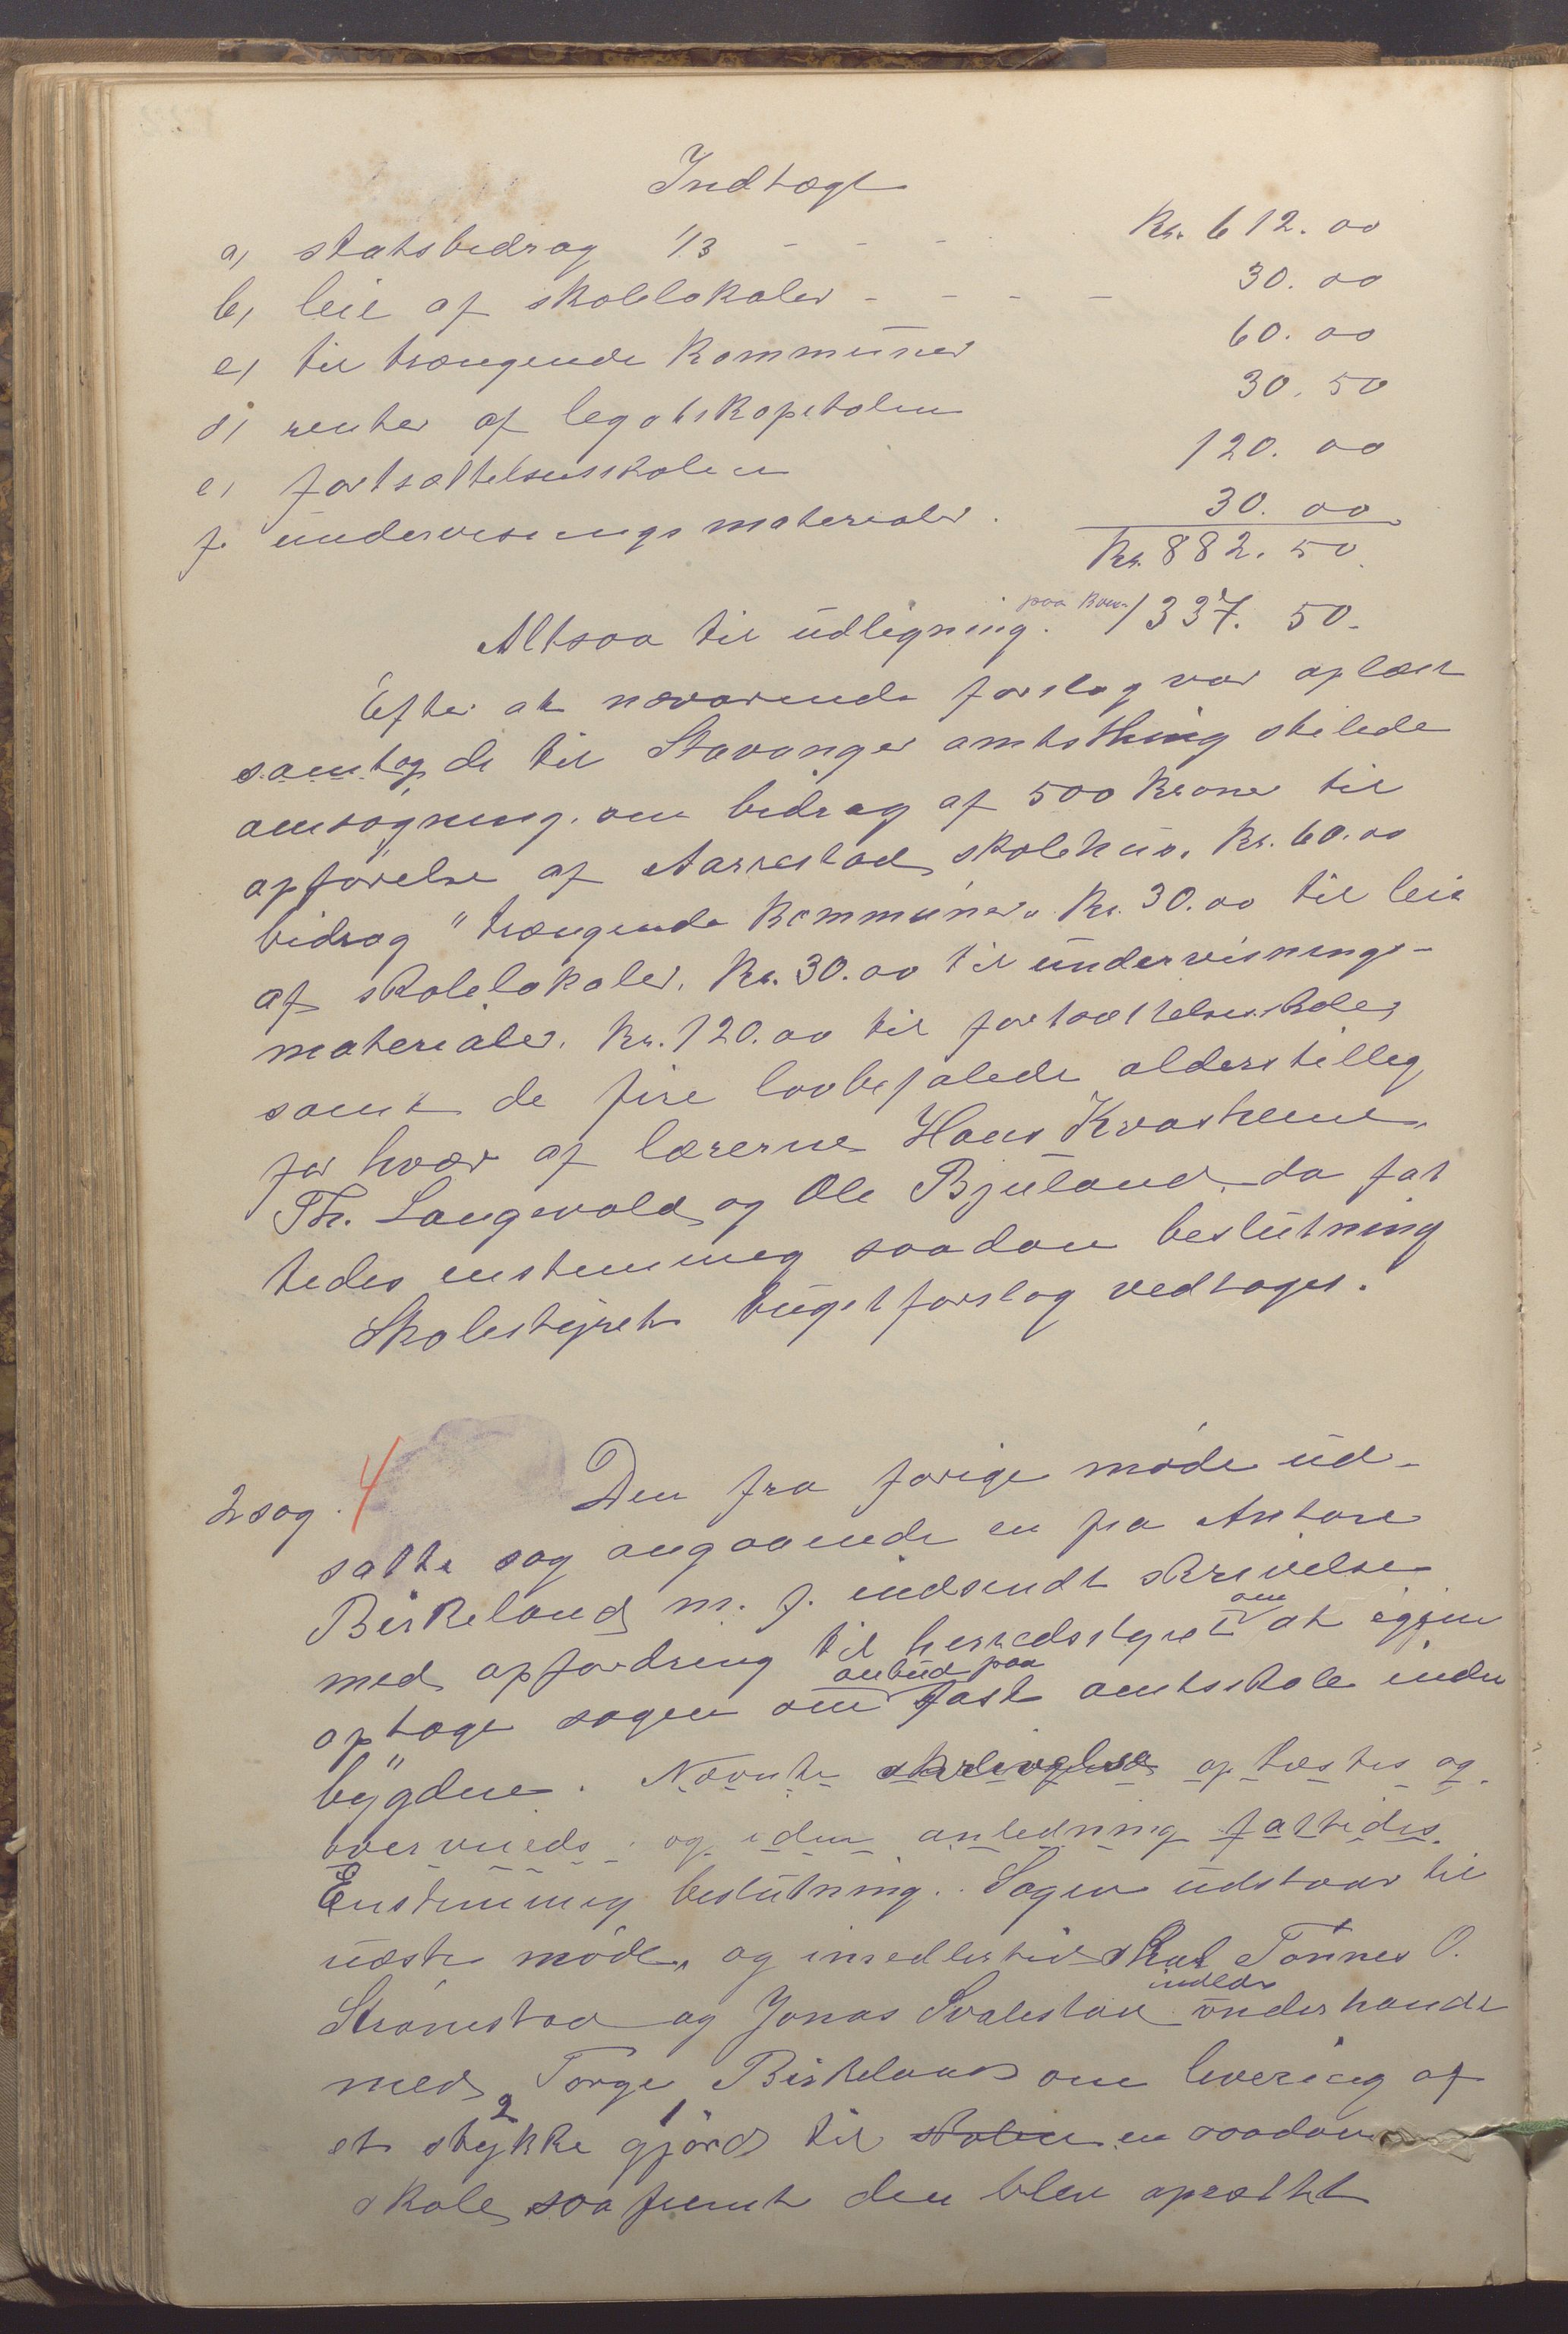 Indtægt
a) statsbedrag 1/3 - - - Kr. 612.00
b) leie af skolelokaler - - - - 30.00
c) til trængende kommuner 60.00
d) renter af legatskapitalen 30.50
e) fortsættelsesskolen 120.00
f. undervisningsmaterialer. 30.00
Kr. 882.50
Altsaa til udligning. paa kom. 1337.50.
Efter at næværende forslag var oplæst
samt og de til Stavanger amtsthing stilede
ansøgning om bidrag af 500 kroner til
opførelse af Aarrestad skolehus. Kr. 60.00
bidrag "trængende kommuner" Kr. 30.00 til leie
af skolelokaler. Kr. 30.00 til undervisnings-
materialer. Kr. 120.00 til fortsættelsesskole,
samt de fire lovbefalede alderstillæg
for hver af lærerne Hans Kvasheim
Th. Langevald og Ole Bjuland, da fat
tedes enstemmig saadan beslutning
Skolestyrets bugetforslag vedtages.
2 sag. 4 Den fra forige møde ud-
satte sag angaaende en fra Antore
Birkeland m. f. indsendt skrivelse
med opfordring til herredsstyret om at igjen
optage sagen om anbud paa fast amtsskole inden
bygden. Nævnte skrivelse oplæstes og
overveieds og i den anledning fattedes
Enstemmig beslutning. Sagen udstaar til
næste møde, og imedlertid skal Tønnes O.
Strømstad og Jonas Svalestad indlede underhandl
med Torger Birkeland om levering af
et stykke 2 gjord 1 til skolen en saadan
skole saa fremt den blev oprættet